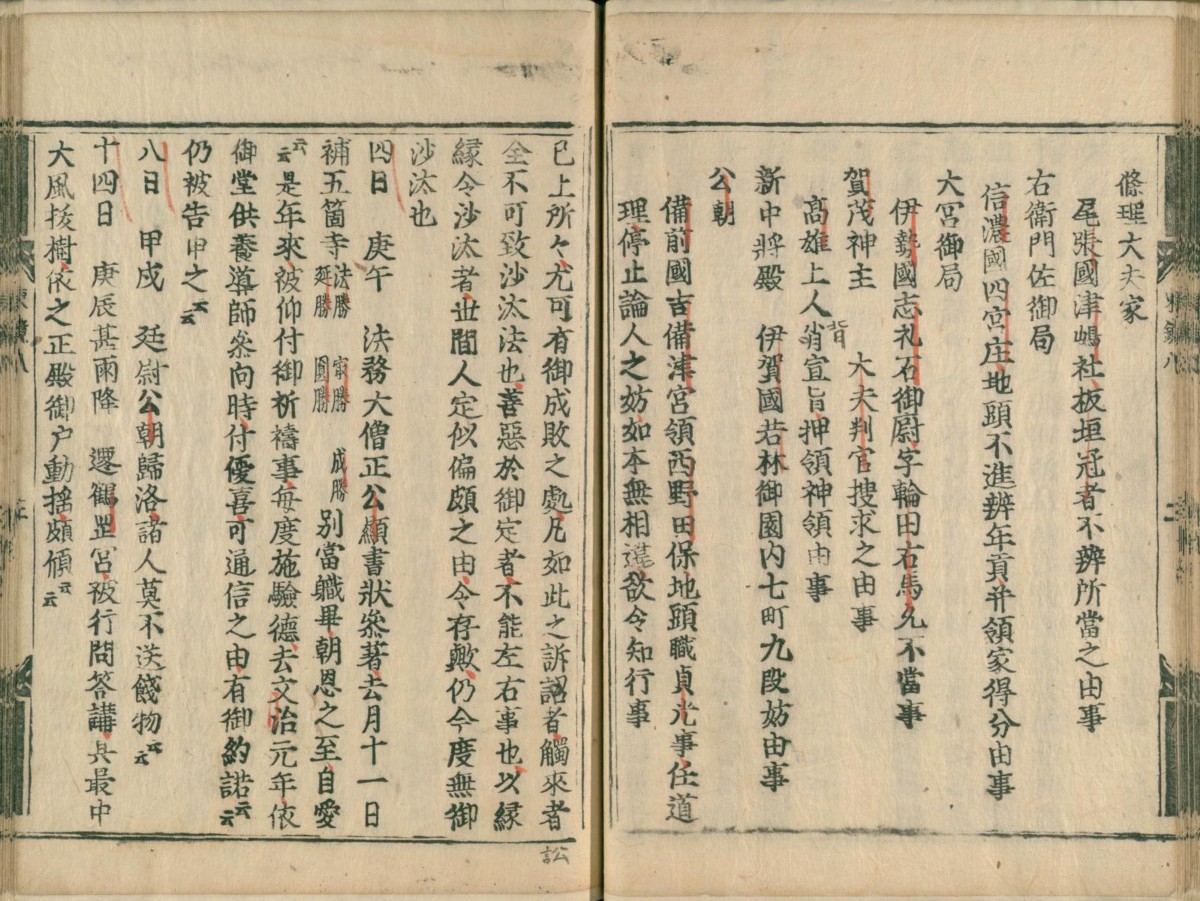 條理大夫家
尾張國津嶋社板垣冠者不辨所當之由事
右衛門佐御局
信濃國四宮庄地頭不進辨年貢并領家得分由事
大宮御局
伊勢國志礼石御尉字輪田右馬允不當事
賀茂神主　大夫判官搜求之由事
髙雄上人背宣旨押領神領由事
新中將殿　伊賀國若林御園内七町九段妨由事
公朝
備前國吉備津宮領西野田保地頭職貞光事任道
理停止論人之妨如本無相違欲令知行事
已上所々尤可有御成敗之處凡如此之訴詔者觸來者
全不可致沙汰法也善惡於御定者不能左右事也以縁
縁令沙汰者世間人定似偏頗之由令存歟仍今度無御
沙汰也
四日　庚午　法務大僧正公顯書狀参著去月十一日
補五箇寺法勝　㝡勝　成勝　延勝　圓勝別當職畢朝恩之至自愛
云云是年來被仰付御祈禱事每度施驗德去文治元年依
御堂供養導師参向時付優喜可通信之由有御約諾云云
仍被告申之云云
八日　甲戌　廷尉公朝歸洛諸人莫不送餞物云云
十四日　庚辰甚雨降　遷鶴罡宮被行問答講兵最中
大風抜樹依之正殿御户動揺頗傾云云
訟